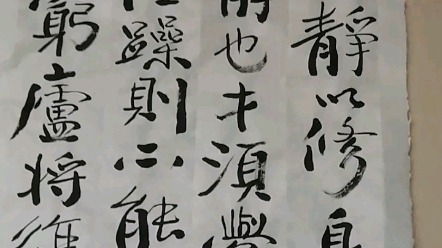 靜以修身
也才須學
躁則不能
窮廬將復